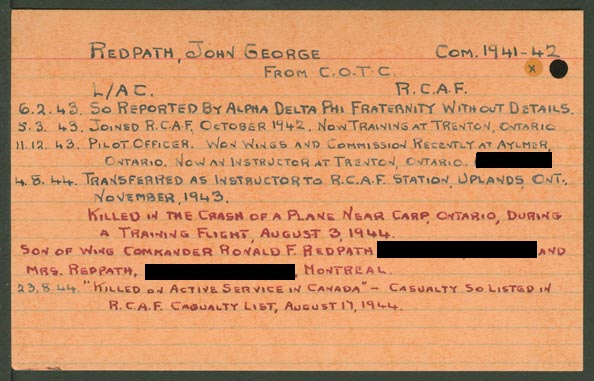 REDPATH, JOHN GEORGE COM. 1941-42
FROM C.O.T.C. x
L/AC. R.C.A.F.
6.2.43. SO REPORTED BY ALPHA DELTA PHI FRATERNITY WITHOUT DETAILS.
5.3.43. JOINED R.C.A.F. OCTOBER 1942. NOW TRAINING AT TRENTON, ONTARIO
11.12.43. PILOT OFFICER. WON WINGS AND COMMISSION RECENTLY AT AYLMER,
ONTARIO. NOW AN INSTRUCTOR AT TRENTON, ONTARIO.
4.8.44. TRANSFERRED AS INSTRUCTOR TO R.C.A.F. STATION, UPLANDS, ONT.,
NOVEMBER, 1943.
KILLED IN THE CRASH OF A PLANE NEAR CARP, ONTARIO, DURING
A TRAINING FLIGHT, AUGUST 3, 1944.
SON OF WING COMMANDER RONALD F. REDPATH AND
MRS. REDPATH, , MONTREAL.
23.8.44. "KILLED ON ACTIVE SERVICE IN CANADA" - CASUALTY SO LISTED IN
R.C.A.F. CASUALTY LIST, AUGUST 17, 1944.